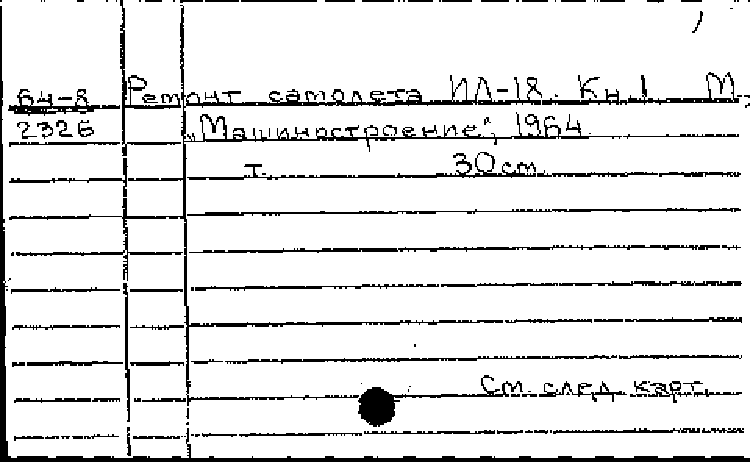 64-8 Ремонт самолета ИЛ-18. Кн. 1. М.,
2326 „Машиностроение", 1964.
т. 30 см.
См. след. карт.